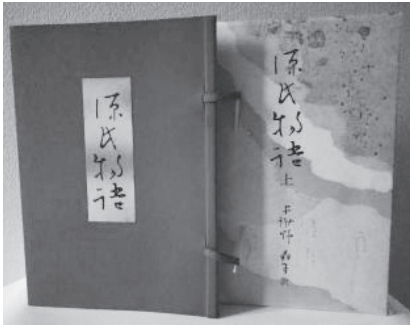 源氏物語
源氏物語 上
与謝野晶子